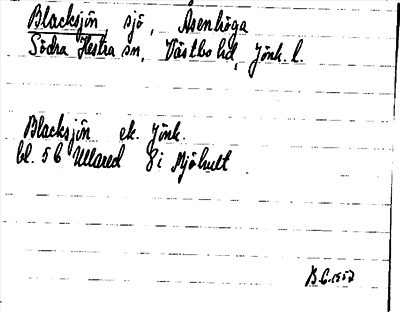 Blacksjön, sjö, Åsenhöga
Södra Hestra sn, Västbo hd, Jönk. l.
Blacksjön ek. Jönk.
bl. 56 Ullared 8i Mjöhult
1957